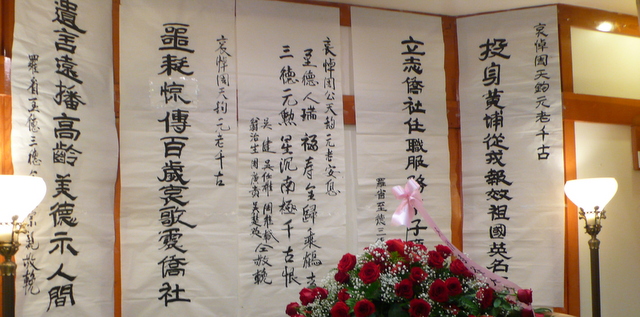 哀悼周天鈞元老千古
投身黃埔從戎報效祖國英名
立志僑社任職服務子
羅省至德三
哀悼周公天鈞元老安息
至德人瑞福寿全歸乘鶴去
三德元勳星沉南極千古恨
吳健
仝敬輓
哀悼周天鈞元老千古
噩耗惊傳百歲哀歌震僑社
遺言遠播高齡美德示人間
羅省至德三德敬輓